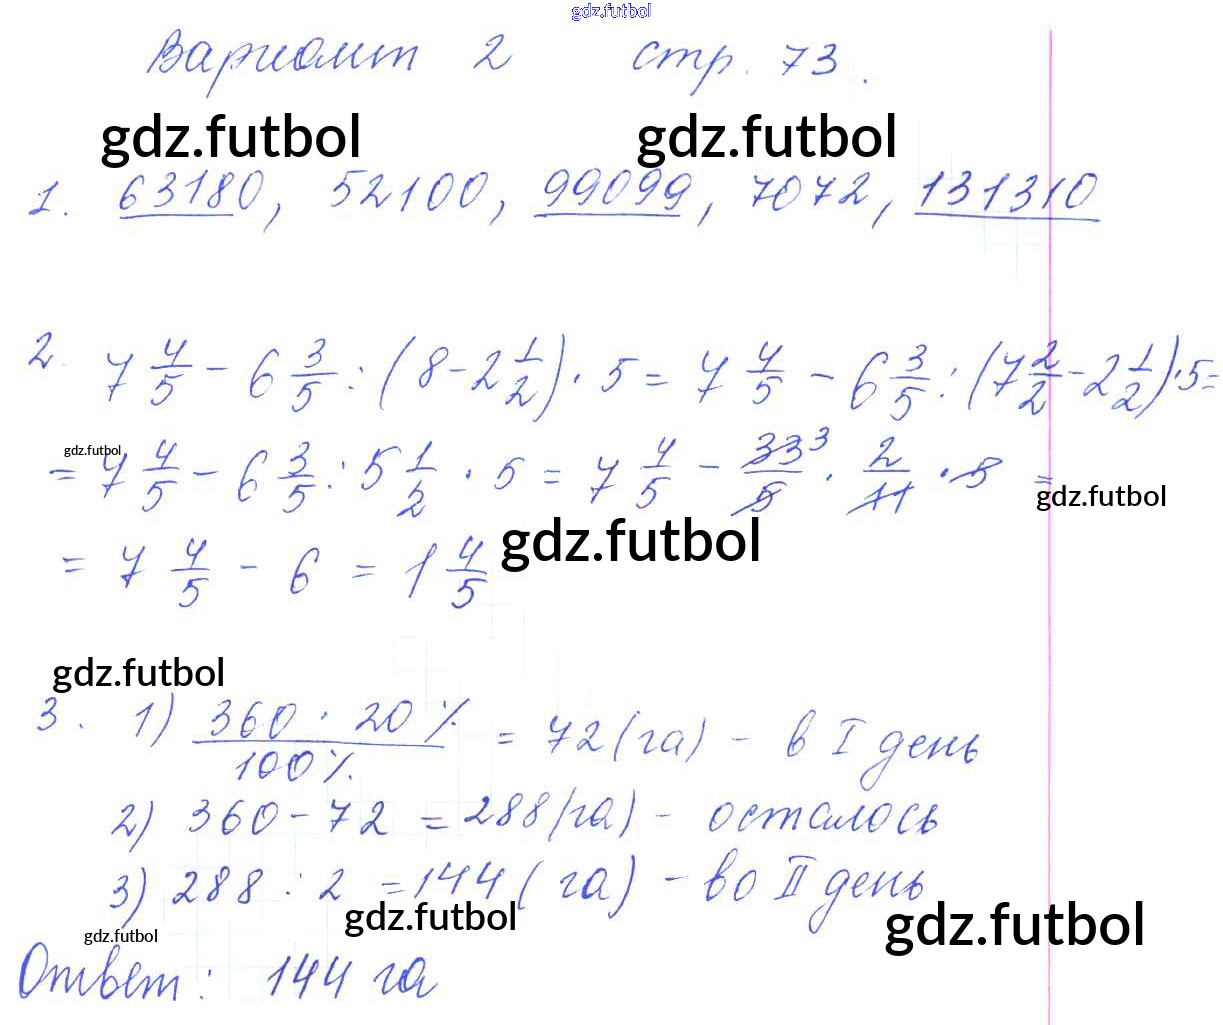 gdz.futbol
Вариант 2 стр. 73.
gdz.futbol gdz.futbol
1. 63180, 52100, 99099, 7072, 131310
2. 7 4/5 - 6 3/5 : (8 - 2 1/2) · 5 = 7 4/5 - 6 3/5 : (7 2/2 - 2 1/2) · 5 =
gdz.futbol
= 7 4/5 - 6 3/5 : 5 1/2 · 5 = 7 4/5 - 33 3/5 · 2/11 · 5 =
gdz.futbol
gdz.futbol
= 7 4/5 - 6 = 1 4/5
gdz.futbol
3. 1) 360 · 20% / 100% = 72 (га) - в I день
2) 360 - 72 = 288 (га) - осталось
3) 288 : 2 = 144 (га) - во II день
gdz.futbol gdz.futbol
gdz.futbol
Ответ: 144 га